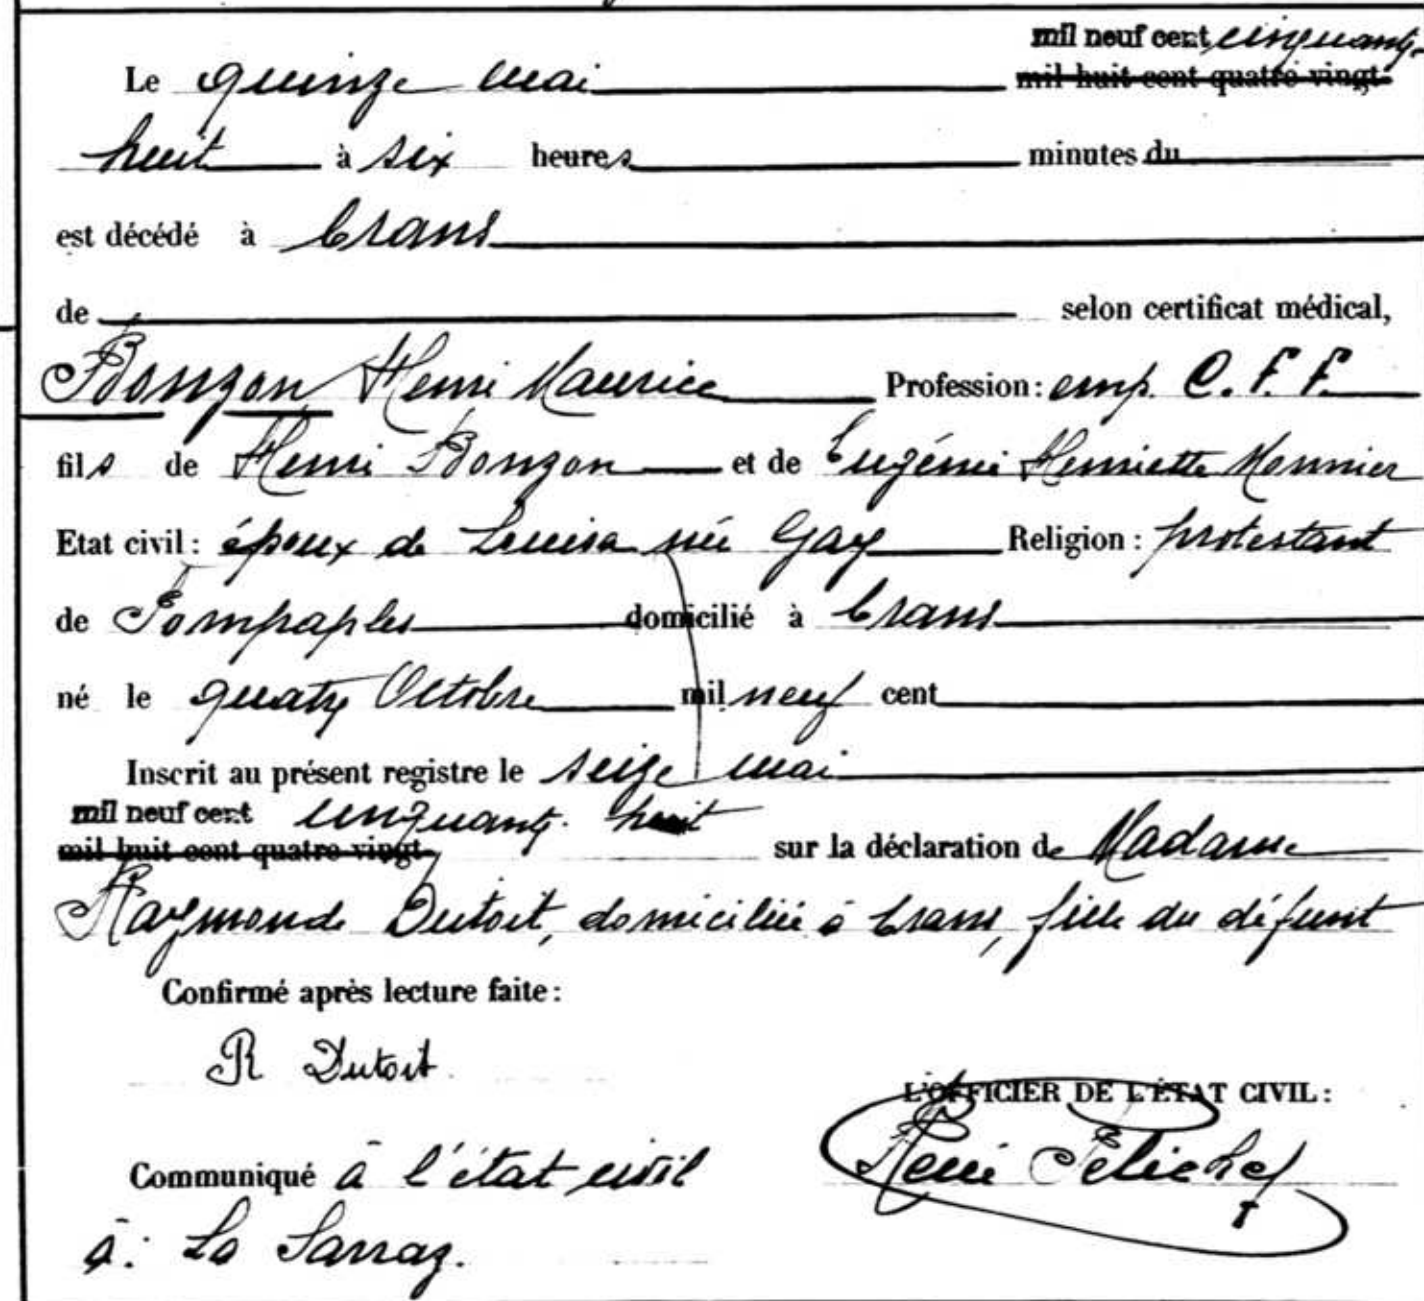 mil neuf cent cinquante
Le quinze mai mil huit cent quatre-vingt-
huit à six heures minutes du
est décédé à Crans
de selon certificat médical,
Bonzon Henri Maurice Profession : emp. C. F. F.
fils de Henri Bonzon et de Eugénie Henriette Monnier
Etat civil : époux de Louisa née Gay Religion : protestant
de Pompaples domicilié à Crans
né le quatre Octobre mil neuf cent
Inscrit au présent registre le seize mai
mil neuf cent cinquante huit
mil huit cent quatre-vingt- sur la déclaration de Madame
Raymonde Dutoit, domiciliée à Crans, fille du défunt
Confirmé après lecture faite :
R Dutoit
L'OFFICIER DE L'ÉTAT CIVIL :
Communiqué à l'état civil René Pelichet
à : La Sarraz.